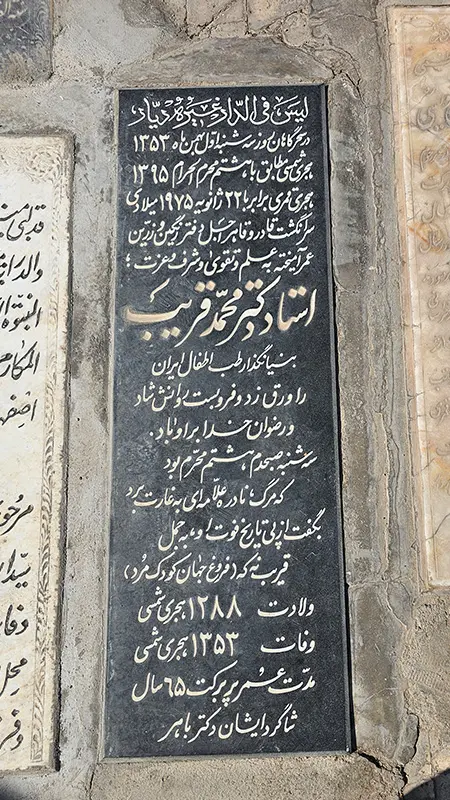 لیس فی الدار غیره دیار
در سحرگاهان روز سه شنبه اول بهمن ماه ۱۳۵۳
هجری شمسی مطابق با هشتم محرم الحرام ۱۳۹۵
هجری قمری برابر با ۲۲ ژانویه ۱۹۷۵ میلادی
سرانگشت قادر و قاهر اجل دفتر رنگین و زرین
عمر آمیخته به علم و تقوی و شرف و عزت ؛
استاد دکتر محمد قریب
بنیانگذار طب اطفال ایران
را ورق زد و فرو بست روانش شاد
و رضوان خدا بر او باد .
سه شنبه صبحدم هشتم محرم بود
که مرگ، نادره علامه ای به غارت برد
بگفت از پی تاریخ فوت او، به جمل
قریب نه که (فروغ جهان کودک مرد)
ولادت ۱۲۸۸ هجری شمسی
وفات ۱۳۵۳ هجری شمسی
مدت عمر پر برکت ۶۵ سال
شاگرد ایشان دکتر باهر
قدبنی
والدراي
المکارم
اصفه
مرحو
سید ا
محل